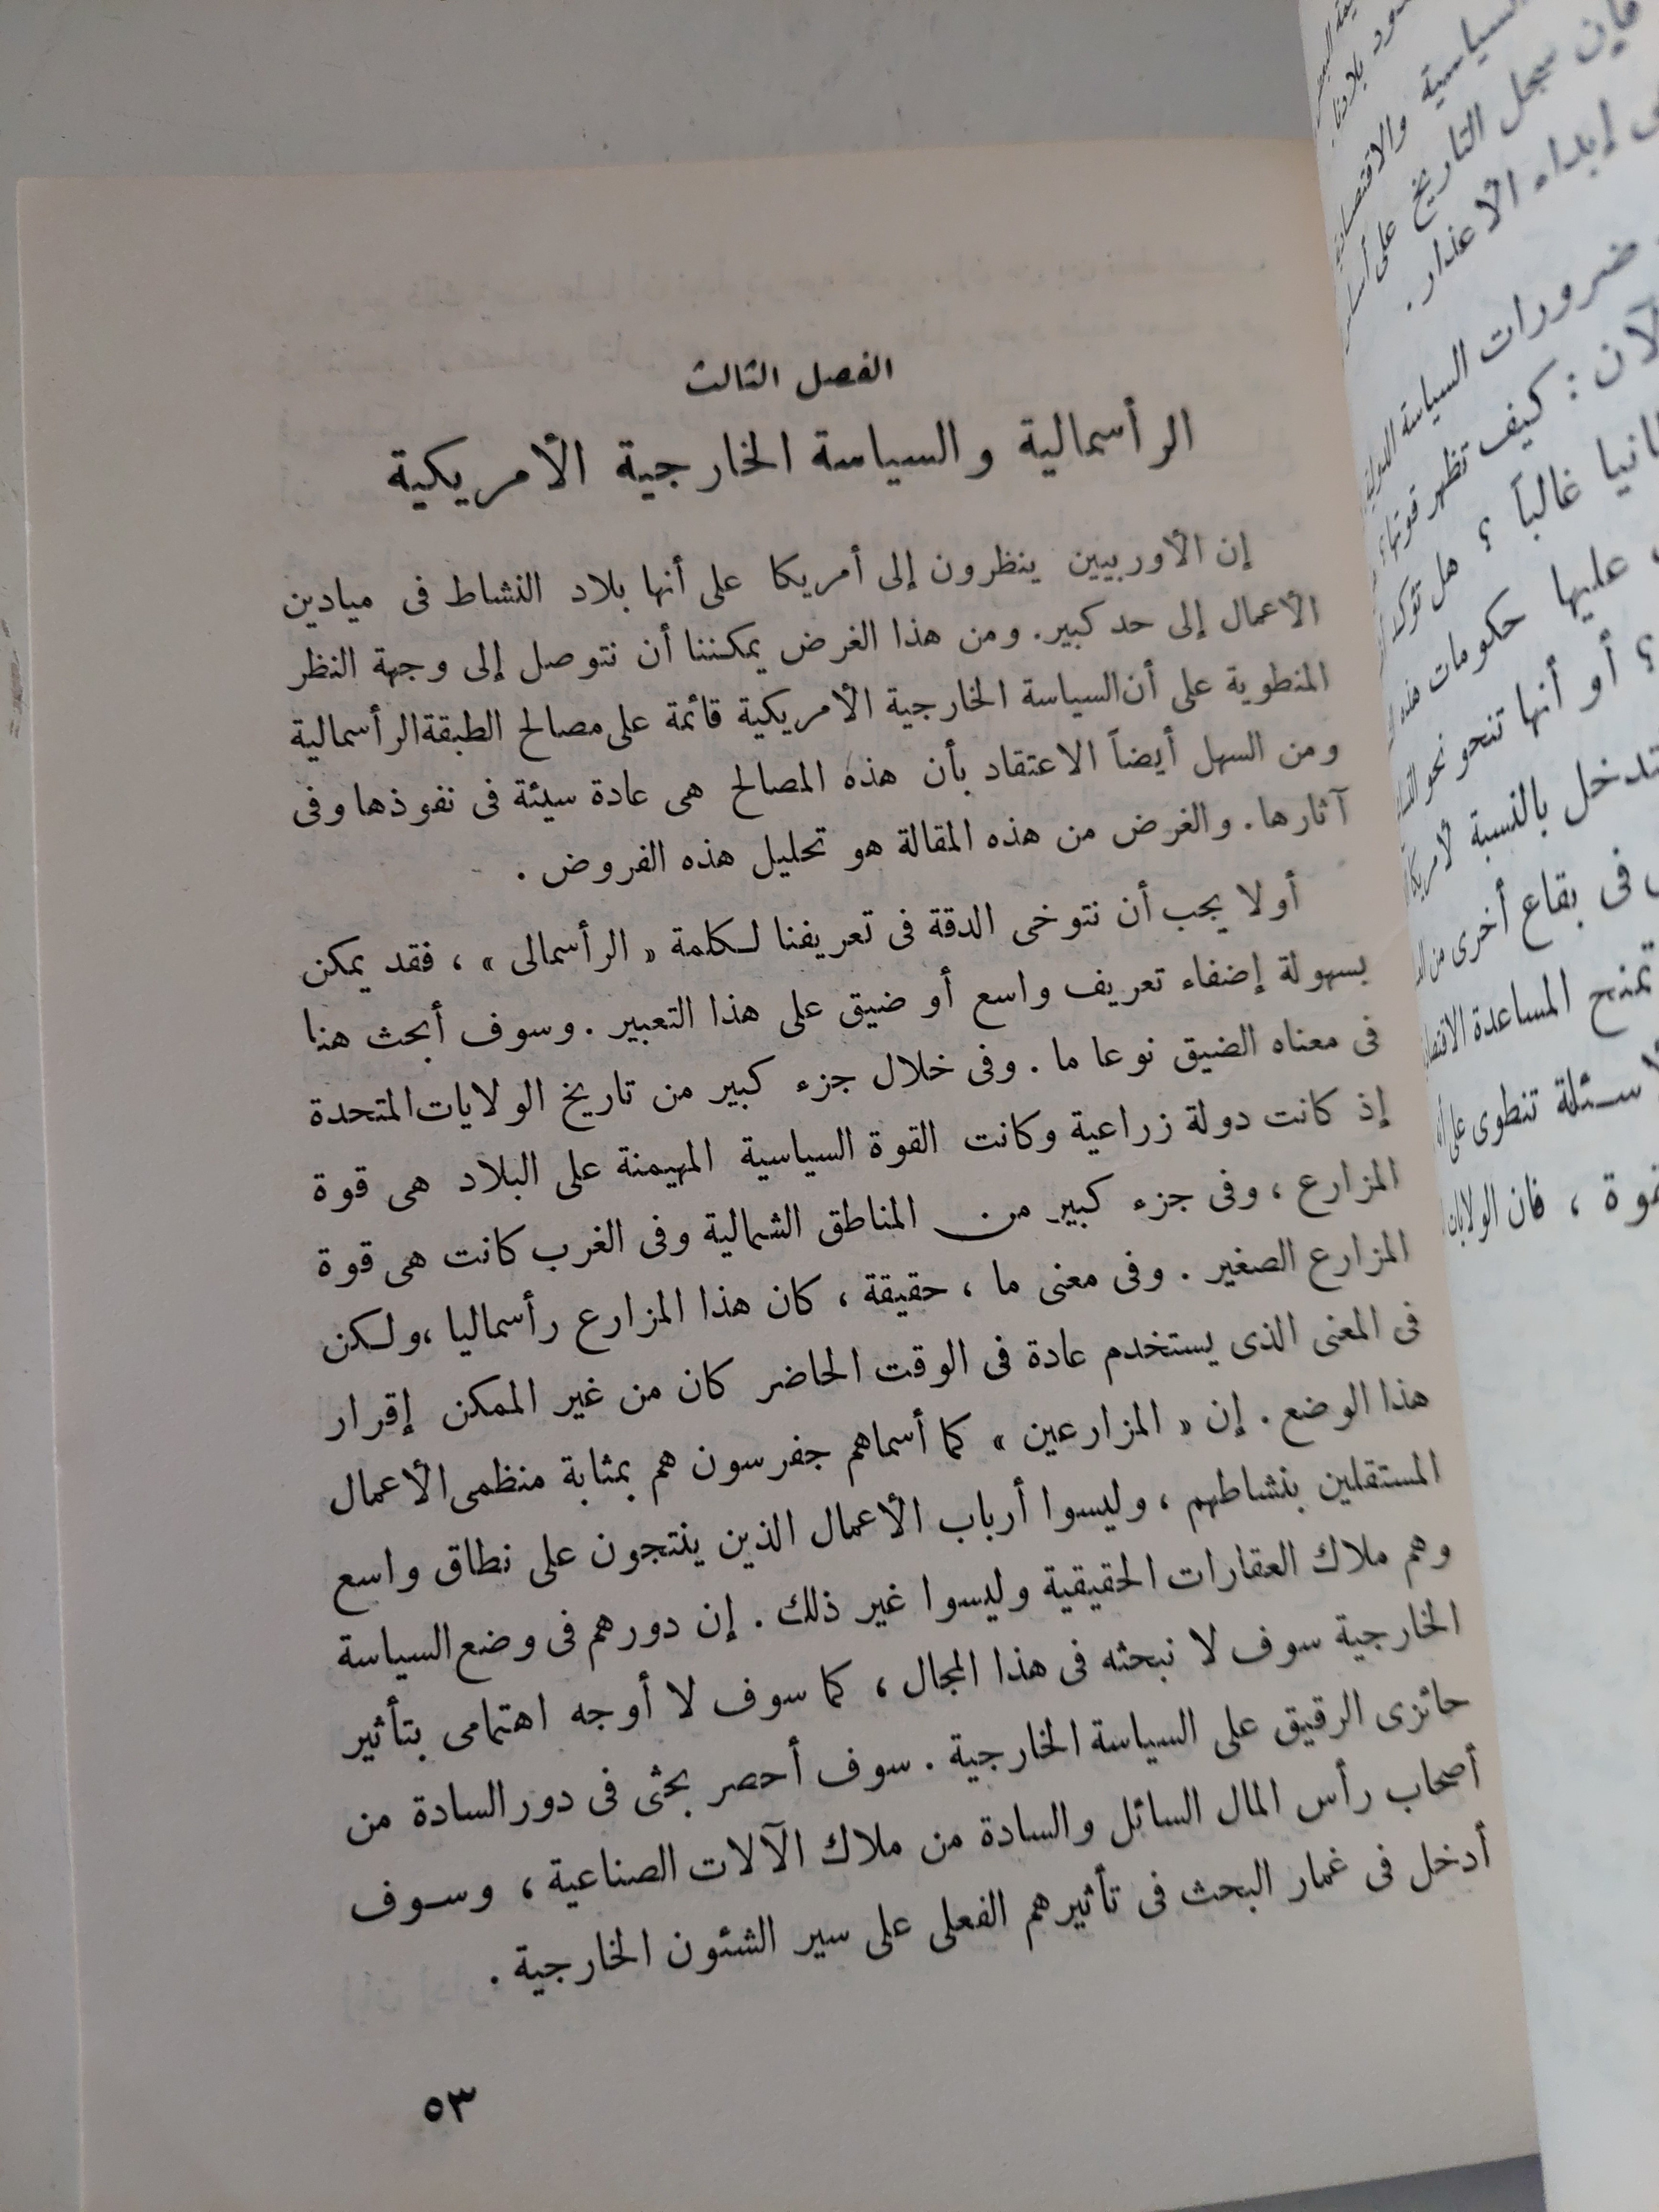 الفصل الثالث
الرأسمالية والسياسة الخارجية الأمريكية
إن الأوربيين ينظرون إلى أمريكا على أنها بلاد النشاط فى ميادين
الأعمال إلى حد كبير. ومن هذا الغرض يمكننا أن نتوصل إلى وجهة النظر
المنطوية على أن السياسة الخارجية الأمريكية قائمة على مصالح الطبقة الرأسمالية
ومن السهل أيضاً الاعتقاد بأن هذه المصالح هى عادة سيئة فى نفوذها وفى
آثارها. والغرض من هذه المقالة هو تحليل هذه الفروض .
أولا يجب أن نتوخى الدقة فى تعريفنا لكلمة « الرأسمالى » ، فقد يمكن
بسهولة إضفاء تعريف واسع أو ضيق على هذا التعبير . وسوف أبحث هنا
فى معناه الضيق نوعا ما . وفى خلال جزء كبير من تاريخ الولايات المتحدة
إذ كانت دولة زراعية وكانت القوة السياسية المهيمنة على البلاد هى قوة
المزارع ، وفى جزء كبير من المناطق الشمالية وفى الغرب كانت هى قوة
المزارع الصغير . وفى معنى ما ، حقيقة ، كان هذا المزارع رأسماليا ، ولكن
فى المعنى الذى يستخدم عادة فى الوقت الحاضر كان من غير الممكن إقرار
هذا الوضع . إن « المزارعين » كما أسماهم جفرسون هم بمثابة منظمى الأعمال
المستقلين بنشاطهم ، وليسوا أرباب الأعمال الذين ينتجون على نطاق واسع
وهم ملاك العقارات الحقيقية وليسوا غير ذلك . إن دورهم فى وضع السياسة
الخارجية سوف لا نبحثه فى هذا المجال ، كما سوف لا أوجه اهتمامى بتأثير
حائزى الرقيق على السياسة الخارجية . سوف أحصر بحثى فى دور السادة من
أصحاب رأس المال السائل والسادة من ملاك الآلات الصناعية ، وسوف
أدخل فى غمار البحث فى تأثيرهم الفعلى على سير الشئون الخارجية .
٥٣
السياسية والاقتصادية
فإن سجل التاريخ على
إبداء الأعذار .
ضرورات السياسة الدولية
كيف تظهر قوتها
غالباً ؟ هل تؤكد
عليها حكومات
؟ أو أنها تنحو نحو
بالنسبة لأمريكا
فى بقاع أخرى من
تمنح المساعدة
تنطوى على
، فان الولايات